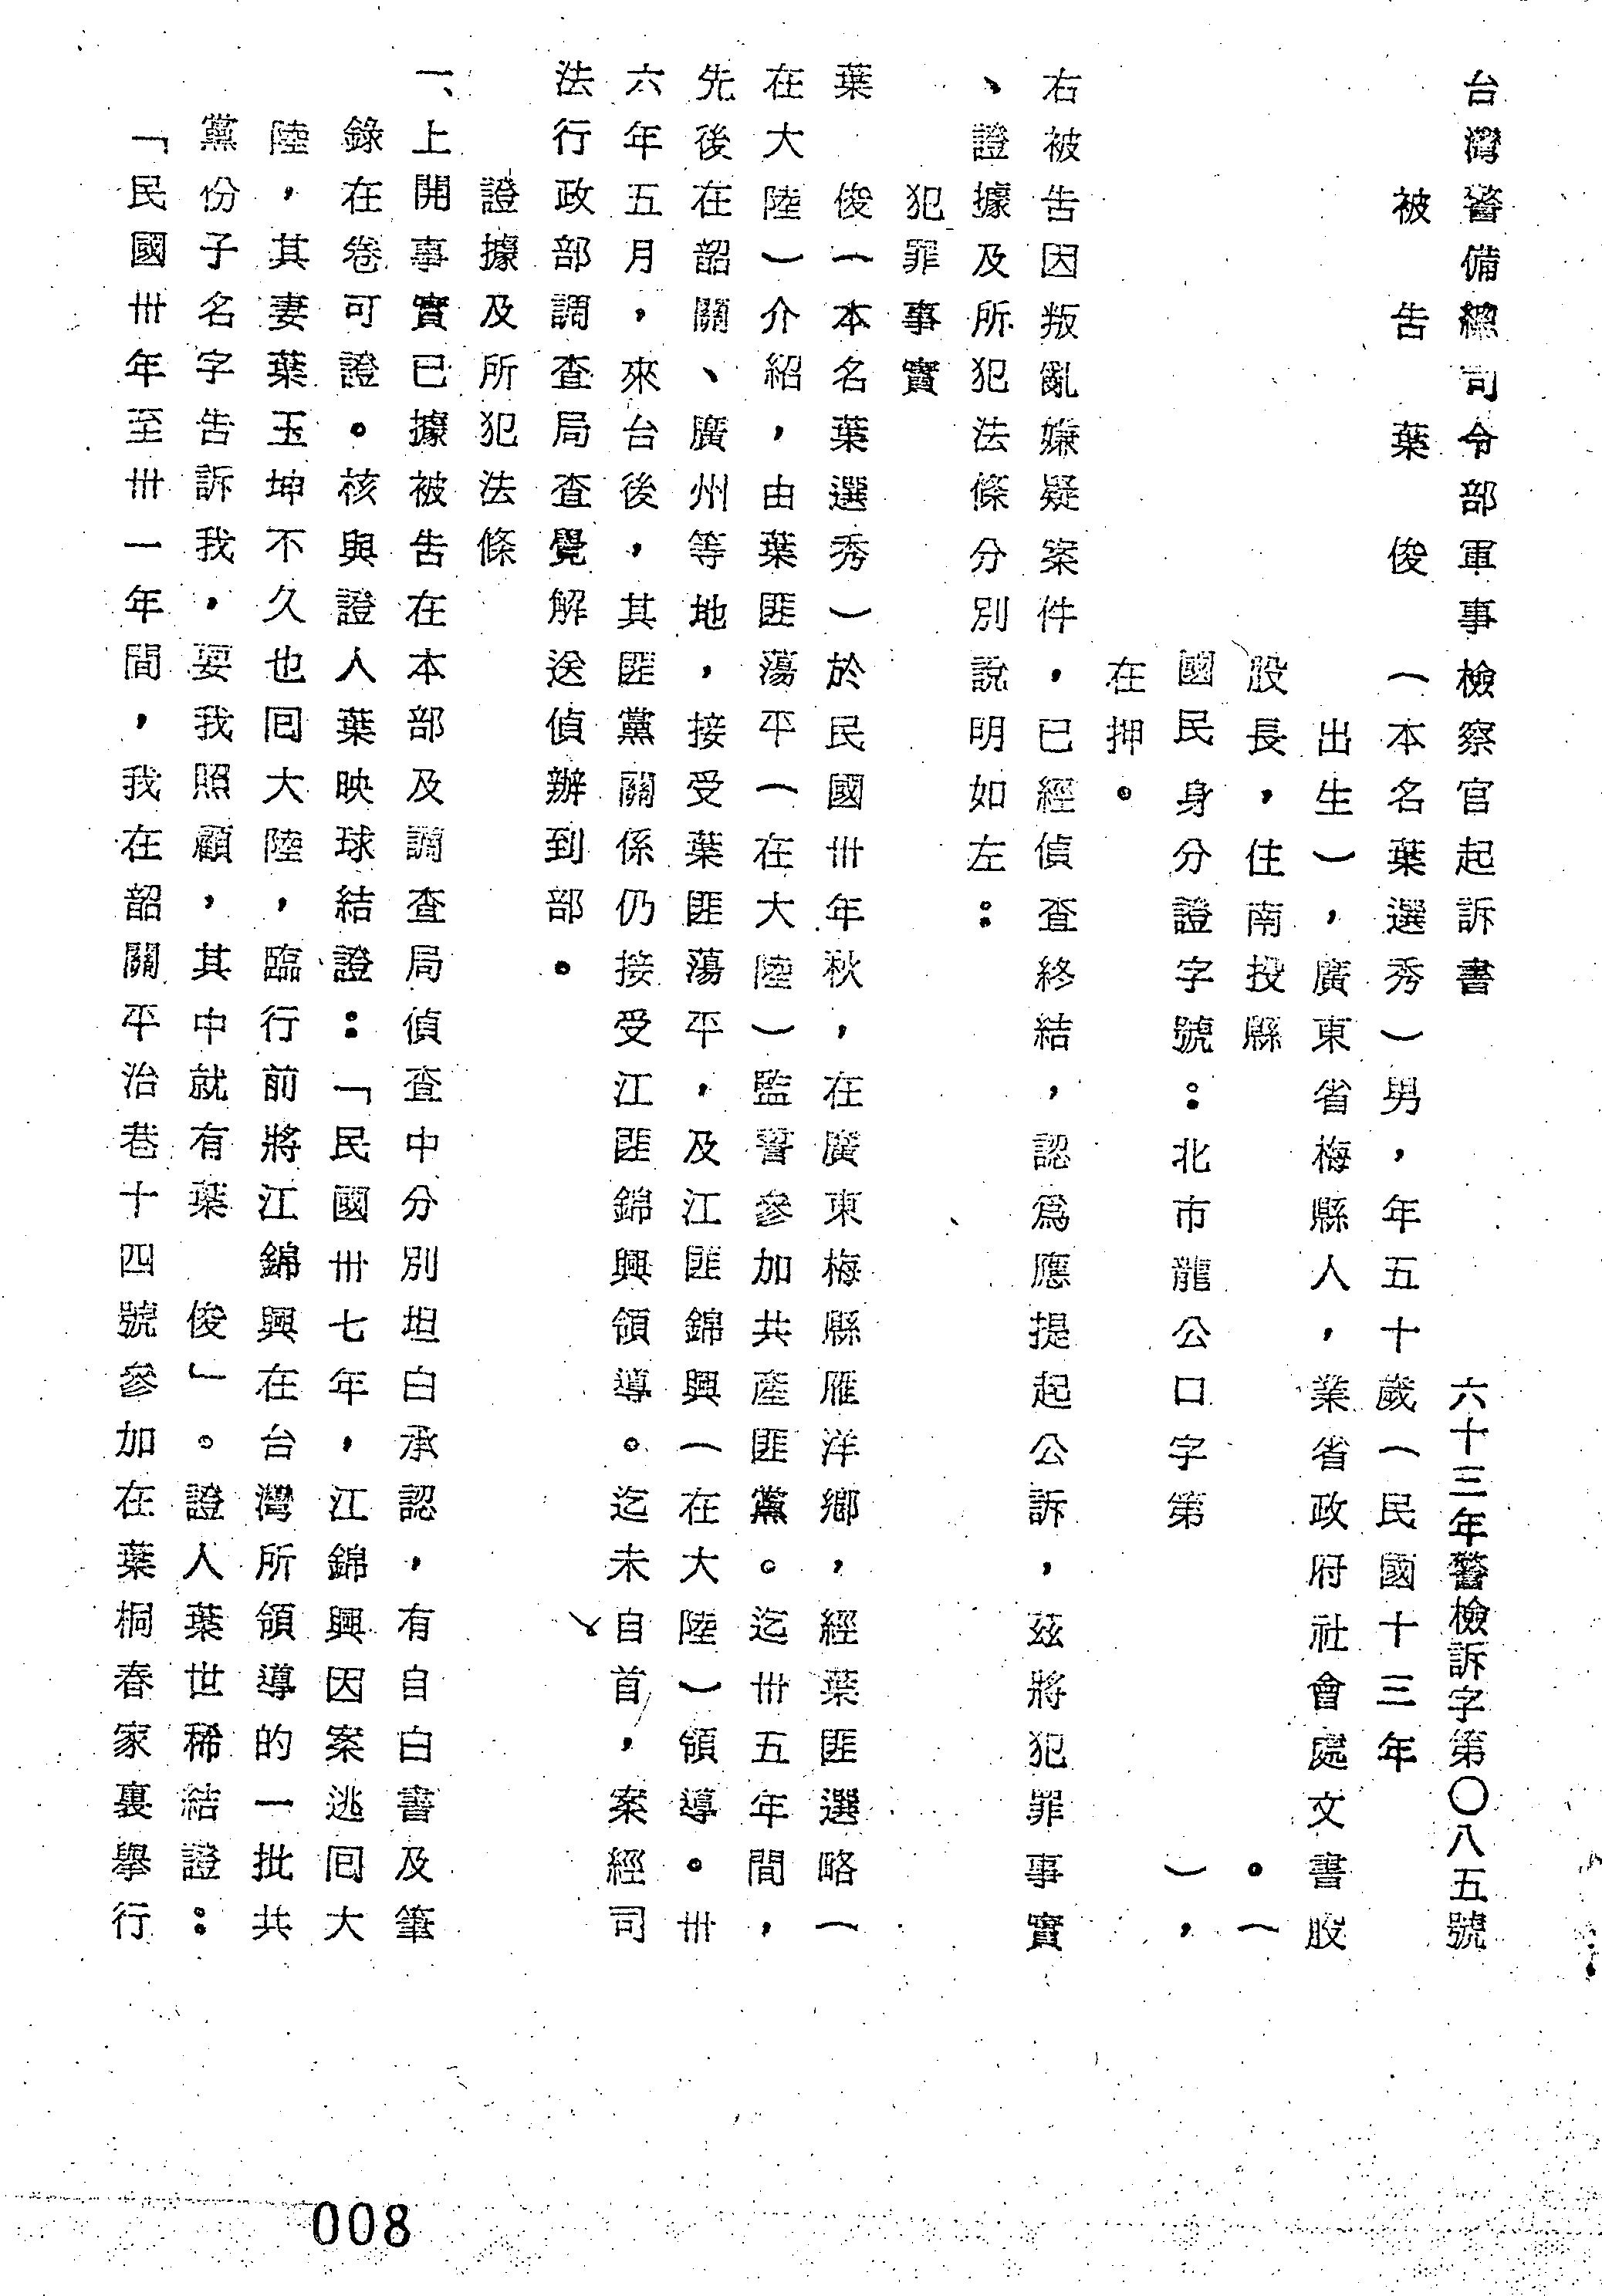 台灣警備總司令部軍事檢察官起訴書
六十三年警檢訴字第〇八五號
被告 葉 俊(本名葉選秀)男,年五十歲(民國十三年
出生),廣東省梅縣人,業省政府社會處文書股
股長,住南投縣 。(
國民身分證字號:北市龍公口字第 ),
在押。
右被告因叛亂嫌疑案件,已經偵查終結,認為應提起公訴,茲將犯罪事實
、證據及所犯法條分別說明如左:
犯罪事實
葉 俊(本名葉選秀)於民國卅年秋,在廣東梅縣雁洋鄉,經葉匪選略(
在大陸)介紹,由葉匪蕩平(在大陸)監誓參加共產匪黨。迄卅五年間,
先後在韶關、廣州等地,接受葉匪蕩平,及江匪錦興(在大陸)領導。卅
六年五月,來台後,其匪黨關係仍接受江匪錦興領導。迄未自首,案經司
法行政部調查局查覺解送偵辦到部。
證據及所犯法條
一、上開事實已據被告在本部及調查局偵查中分別坦白承認,有自白書及筆
錄在卷可證。核與證人葉映球結證:「民國卅七年,江錦興因案逃囘大
陸,其妻葉玉坤不久也囘大陸,臨行前將江錦興在台灣所領導的一批共
黨份子名字告訴我,要我照顧,其中就有葉 俊」。證人葉世稀結證:
「民國卅年至卅一年間,我在韶關平治巷十四號參加在葉桐春家裏舉行
008